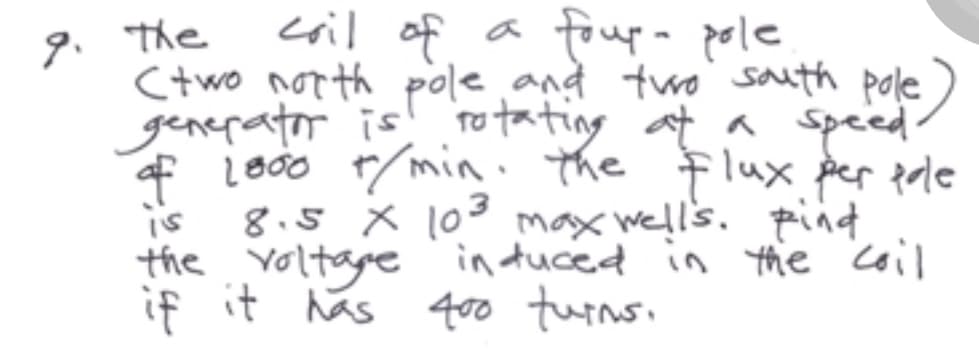 9. The coil of a four-pole
(two north pole and two south pole)
generator is rotating at a speed
of 1800 r/min. The flux per pole
is 8.5 X 10³ maxwells. Find
the voltage induced in the coil
if it has 400 turns.